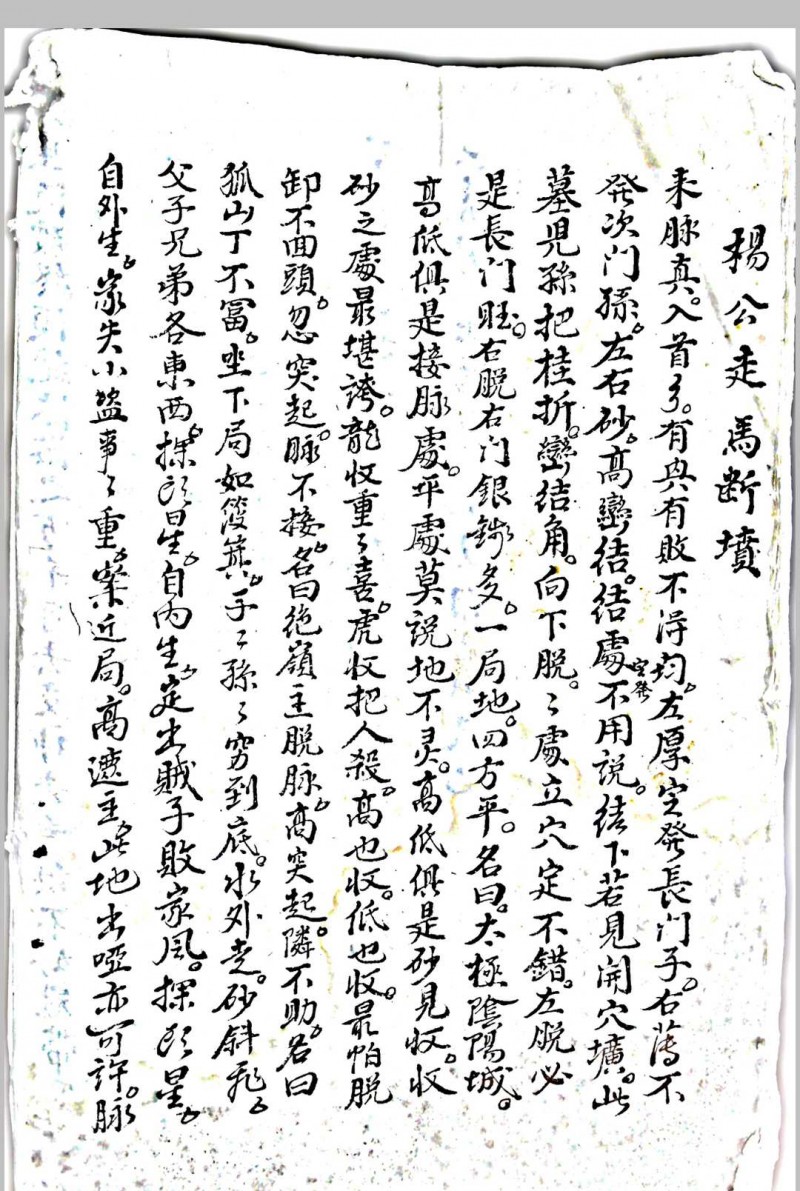 楊公走馬断墳
来脉真。入首了。有興有敗不淂均。左厚定發長门子。右薄不
發次门孫。左右砂。高巒结。结處定發不用説。结下若見開穴壙。此
墓児孫把桂折。巒结角。向下脱。〻處立穴定不錯。左脱必
是長门旺。右脱右门銀錢多。一局地。四方平。名曰。太極陰陽城。
高低俱是接脉處。平處莫説地不灵。高低俱是砂見收。收
砂之處最堪誇。龍收重〻喜。虎收把人殺。高也收。低也收。最怕脱
卸不回頭。忽突起。脉不接。名曰绝嶺主脱脉。高突起。隣不助。名曰
狐山丁不冨。坐下局如簸箕。子〻孫〻穷到底。水外走。砂斜飛。
父子兄弟各東西。探頭星。自内生。定出賊子敗家风。探頭星。
自外生。家失小盜事〻重。案近局。高遮主。此地出啞亦可許。脉